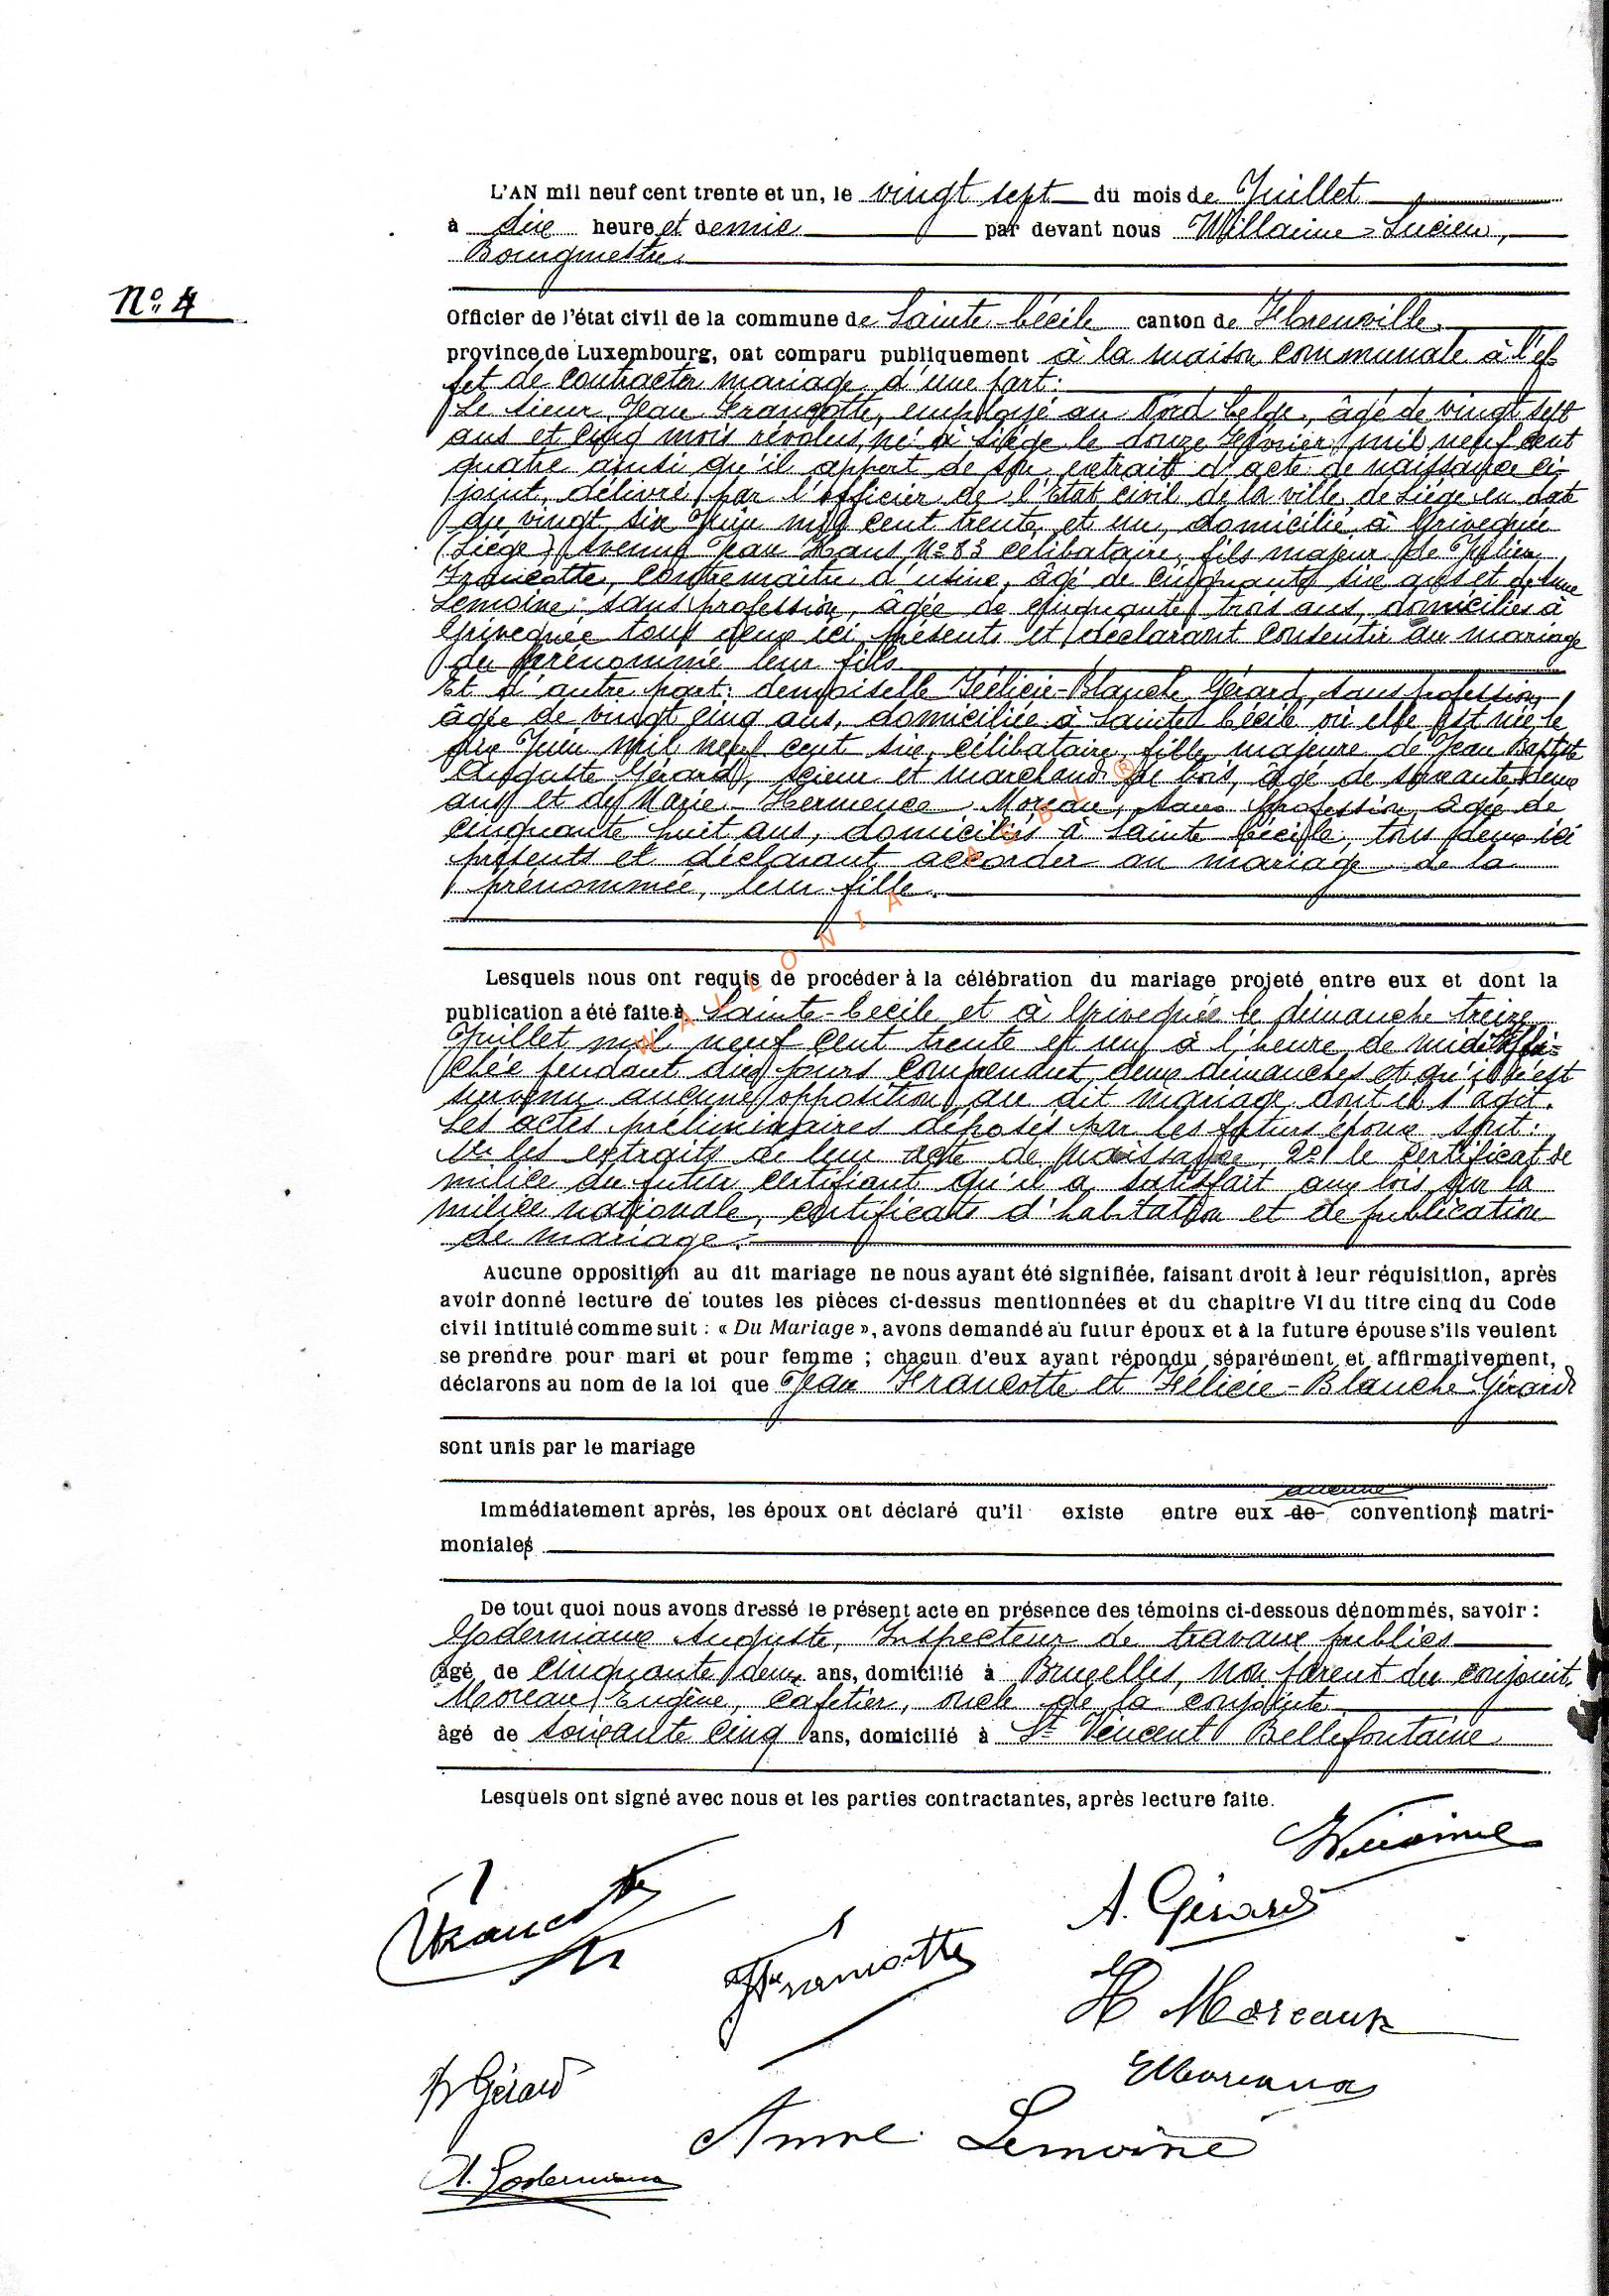 L'AN mil neuf cent trente et un, le vingt sept du mois de Juillet
à dix heure et demie par devant nous Willaime = Lucien,
Bourgmestre
N° 4
Officier de l'état civil de la commune de Sainte-Cécile canton de Florenville
province de Luxembourg, ont comparu publiquement à la maison communale à l'ef-
fet de contracter mariage d'une part:
Le sieur Jean Francotte, employé au Nord belge, âgé de vingt sept
ans et cinq mois révolus, né à Liège le douze Février mil neuf cent
quatre ainsi qu'il appert de son extrait d'acte de naissance ci-
joint, délivré par l'officier de l'état civil de la ville de Liège en date
du vingt six Juin mil cent trente et un, domicilié à Grivegnée
(Liège) Avenue Jean Hans, N° 83 célibataire, fils majeur de Julien
Francotte, contremaître d'usine, âgé de cinquante six ans et de
Lemoine, sans profession, âgée de cinquante trois ans, domiciliés à
Grivegnée tous deux ici présents et déclarant consentir au mariage
du prénommé leur fils.
Et d'autre part: demoiselle Félicie-Blanche Gérard, sans profession,
âgée de vingt cinq ans, domiciliée à Sainte Cécile où elle est née le
six Juin mil neuf cent six, célibataire, fille majeure de Jean Baptiste
Auguste Gérard, scieur et marchand de bois, âgé de soixante deux
ans et de Marie-Hermence Moreau, sans profession, âgée de
cinquante huit ans, domiciliés à Sainte Cécile, tous deux ici
présents et déclarant accorder au mariage de la
prénommée, leur fille.
WALLONIA ASBL ®
Lesquels nous ont requis de procéder à la célébration du mariage projeté entre eux et dont la
publication a été faite à Sainte-Cécile et à Grivegnée le dimanche treize
Juillet mil neuf cent trente et un à l'heure de midi affi-
chée pendant dix jours comprenant deux dimanches et qu'il n'est
survenu aucune opposition au dit mariage dont il s'agit.
Les actes préliminaires déposés par les futurs époux sont:
1° les extraits de leur acte de naissance, 2° le certificat de
milice du futur certifiant qu'il a satisfait aux lois sur la
milice nationale, certificats d'habitation et de publication
de mariage.
Aucune opposition au dit mariage ne nous ayant été signifiée, faisant droit à leur réquisition, après
avoir donné lecture de toutes les pièces ci-dessus mentionnées et du chapitre VI du titre cinq du Code
civil intitulé comme suit : « Du Mariage », avons demandé au futur époux et à la future épouse s'ils veulent
se prendre pour mari et pour femme ; chacun d'eux ayant répondu séparément et affirmativement,
déclarons au nom de la loi que Jean Francotte et Félicie-Blanche Gérard
sont unis par le mariage
aucune
Immédiatement après, les époux ont déclaré qu'il existe entre eux de conventions matri-
moniales
De tout quoi nous avons dressé le présent acte en présence des témoins ci-dessous dénommés, savoir :
Godermiaux Auguste, Inspecteur de travaux publics
âgé de cinquante deux ans, domicilié à Bruxelles, non parent du conjoint,
Moreau Eugène, cafetier, oncle de la conjointe
âgé de soixante cinq ans, domicilié à St Vincent Bellefontaine
Lesquels ont signé avec nous et les parties contractantes, après lecture faite.
Willaime
Francotte
A. Gérard
Francotte
H Moreaux
Gérard
EMoreaux
Anne Lemoine
A. Godermiaux